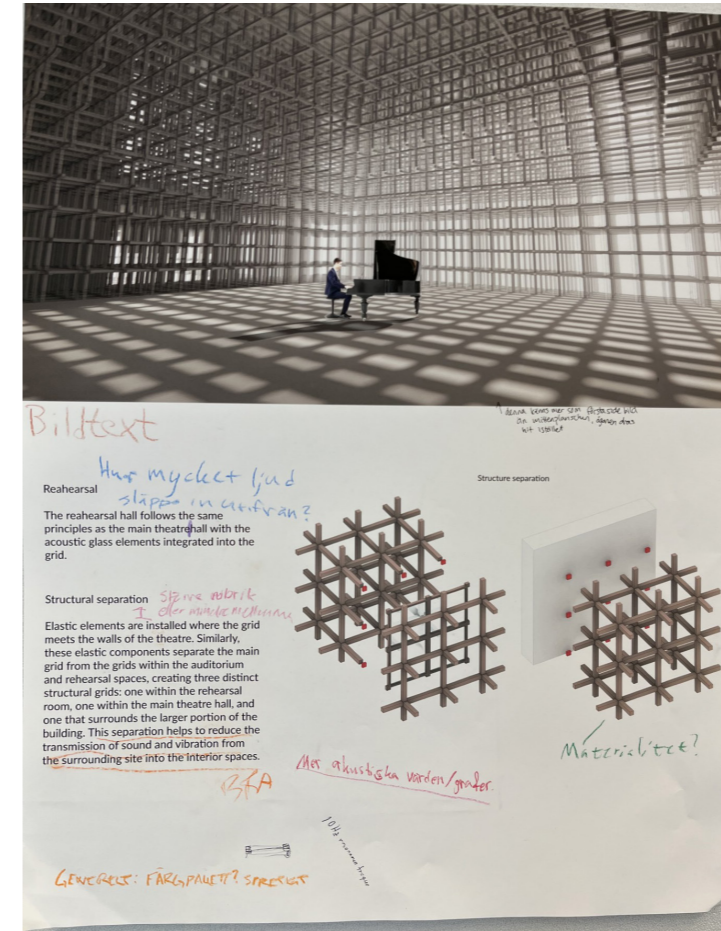 Bildtext
denna känns mer som förstasida bild
än
hit istället
Hur mycket ljud
släpps in utifrån?
Structure separation
Reahearsal
The reahearsal hall follows the same
principles as the main theatrehall with the
acoustic glass elements integrated into the
grid.
Structural separation
Större rubrik
eller mindre mellanrum
Elastic elements are installed where the grid
meets the walls of the theatre. Similarly,
these elastic components separate the main
grid from the grids within the auditorium
and rehearsal spaces, creating three distinct
structural grids: one within the rehearsal
room, one within the main theatre hall, and
one that surrounds the larger portion of the
building. This separation helps to reduce the
transmission of sound and vibration from
the surrounding site into the interior spaces.
BRA
Materialitet?
Mer akustiska värden/grafer.
10Hz
GENERELLT: FÄRGPALETT? SPRETIGT